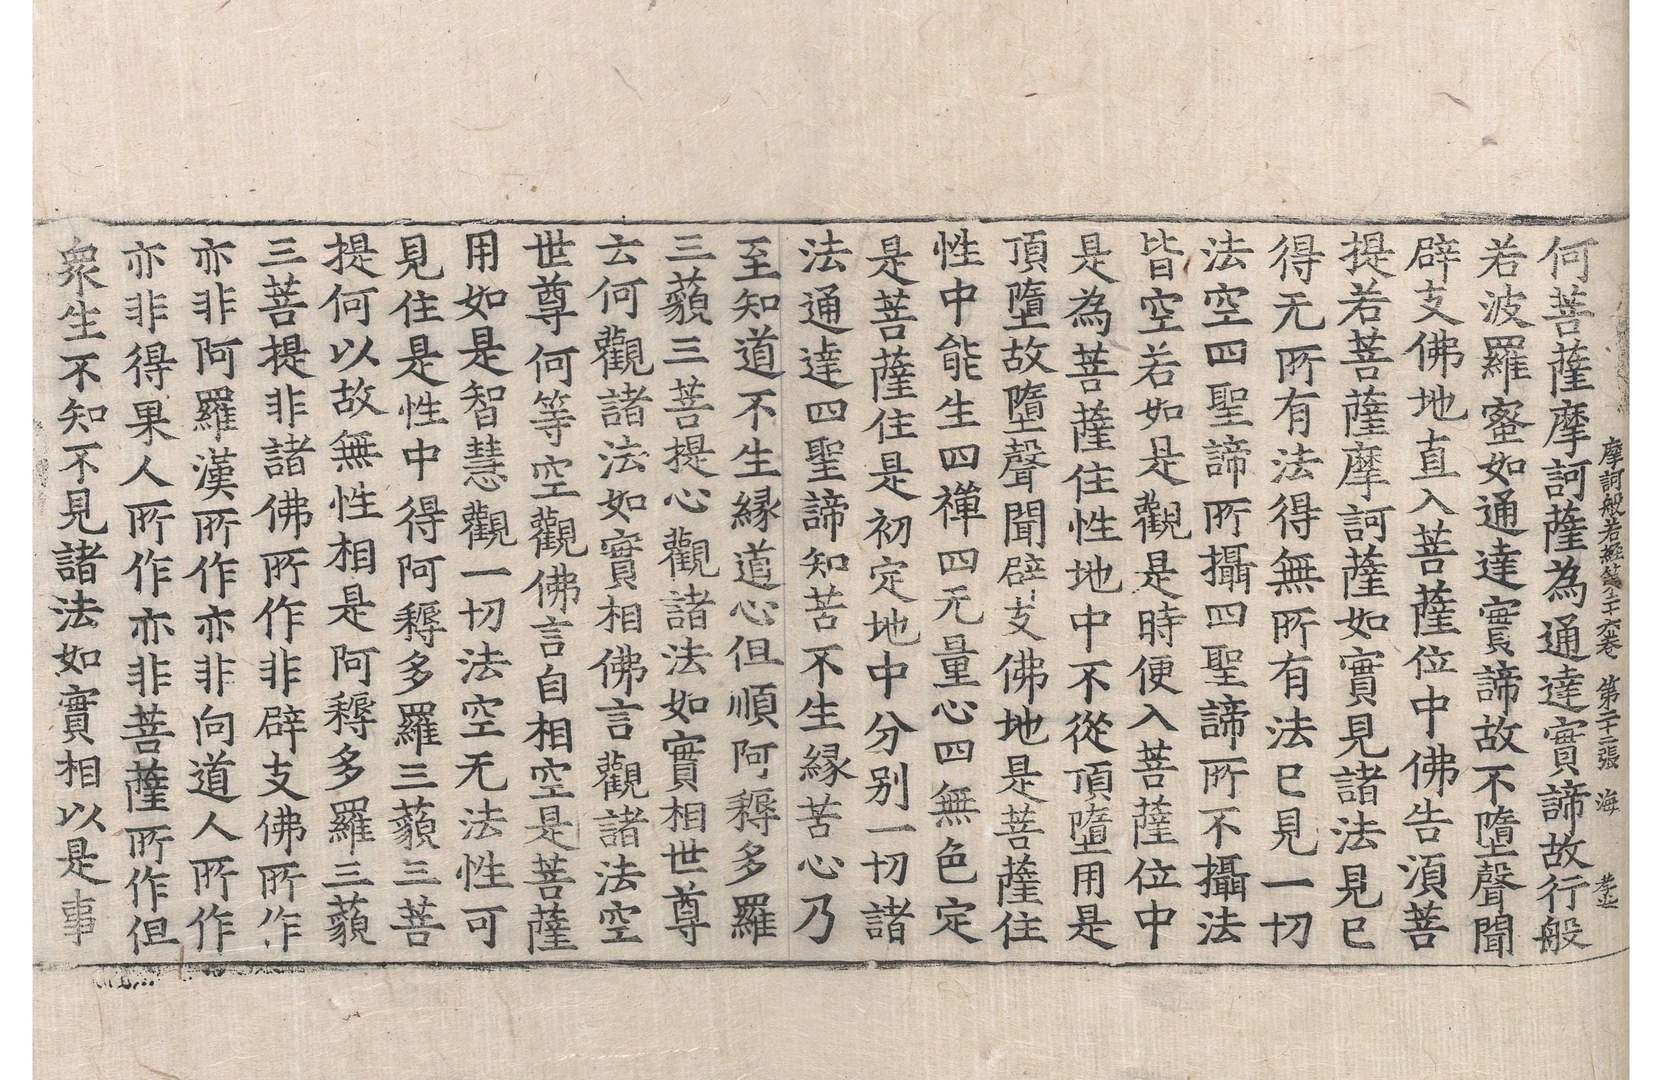 摩訶般若經第二十六卷 第二十二張 海
何菩薩摩訶薩為通達實諦故行般
若波羅蜜如通達實諦故不墮聲聞
辟支佛地直入菩薩位中佛告須菩
提若菩薩摩訶薩如實見諸法見已
得无所有法得無所有法已見一切
法空四聖諦所攝四聖諦所不攝法
皆空若如是觀是時便入菩薩位中
是為菩薩住性地中不從頂墮用是
頂墮故墮聲聞辟支佛地是菩薩住
性中能生四禪四无量心四無色定
是菩薩住是初定地中分别一切諸
法通達四聖諦知苦不生緣苦心乃
至知道不生緣道心但順阿耨多羅
三藐三菩提心觀諸法如實相世尊
云何觀諸法如實相佛言觀諸法空
世尊何等空觀佛言自相空是菩薩
用如是智慧觀一切法空无法性可
見住是性中得阿耨多羅三藐三菩
提何以故無性相是阿耨多羅三藐
三菩提非諸佛所作非辟支佛所作
亦非阿羅漢所作亦非向道人所作
亦非得果人所作亦非菩薩所作但
衆生不知不見諸法如實相以是事